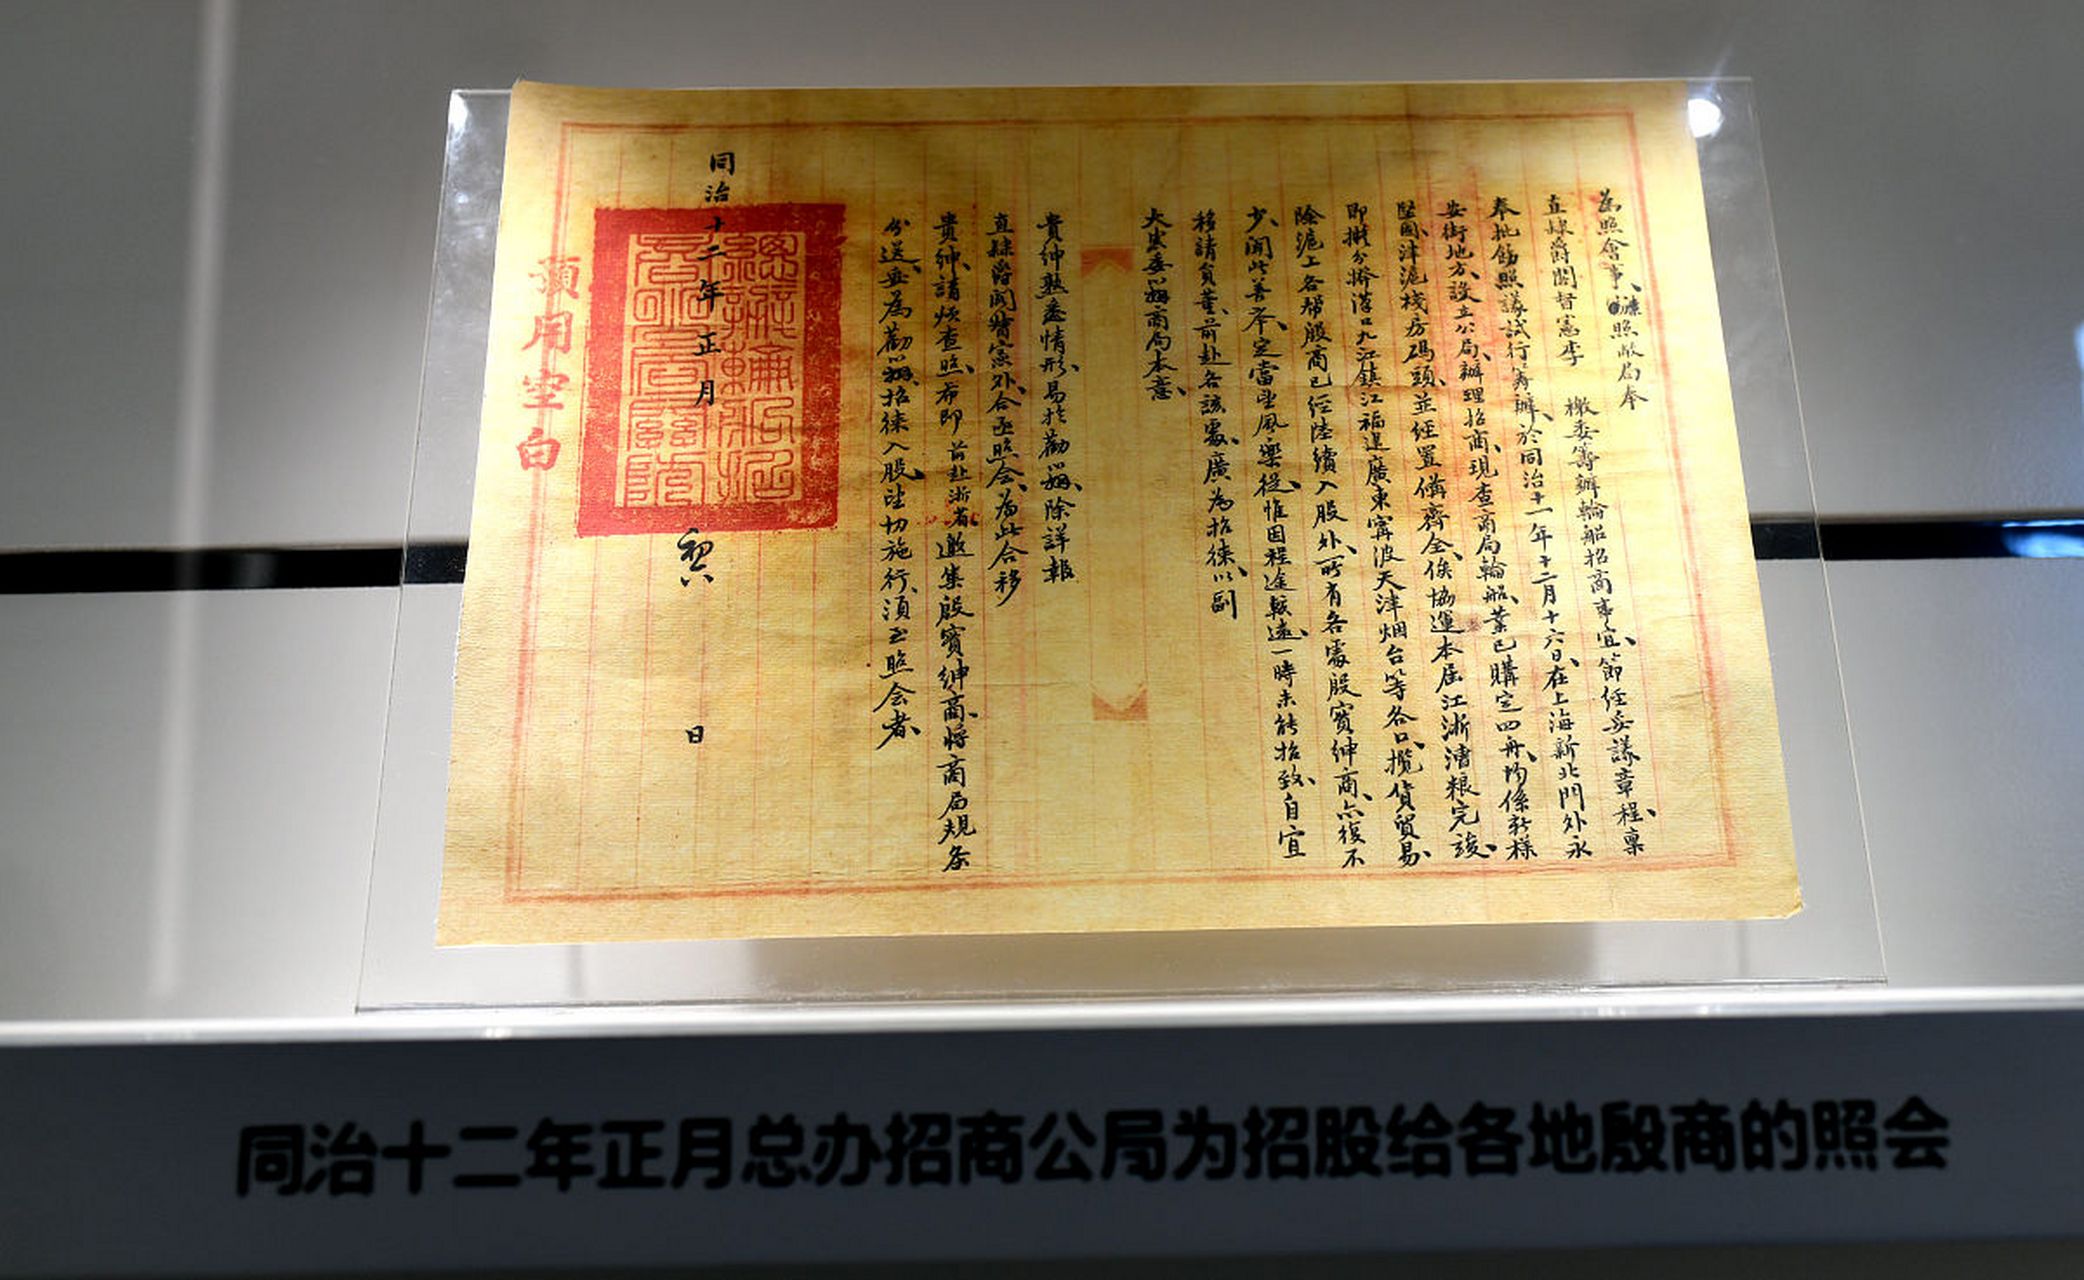 為照會事、照得敝局奉
直隸爵閣督憲李 檄委籌辦輪船招商事宜、節經妥議章程、稟
奉批飭照議試行籌辦、於同治十一年十二月十六日、在上海新北門外永
安街地方、設立公局、辦理招商、現查商局輪船、業已購定四舟、均係新樣
堅固、津滬棧房碼頭、並經置備齊全、俟協運本屆江浙漕糧完竣、
即擬分搭漢口九江鎮江福建廣東寧波天津烟台等各口、攬貨貿易、
除滬上各幫殷商已經陸續入股外、所有各處殷實紳商、亦復不
少、聞此善举、定當望風樂從、惟因程途較遠、一時未能招致、自宜
移請貟董、前赴各該處、廣為招徠、以副
大憲委辦商局本意、
貴紳熟悉情形、易於勸辦、除詳報
直隸爵閣督憲外、合亟照会、為此合移
貴紳、請煩查照、希即前赴浙省、邀集殷實紳商、將商局規条
分送、並為勸辦、招徠入股、望切施行、須至照会者、
同治十二年正月 日
預用空白
同治十二年正月总办招商公局为招股给各地殷商的照会